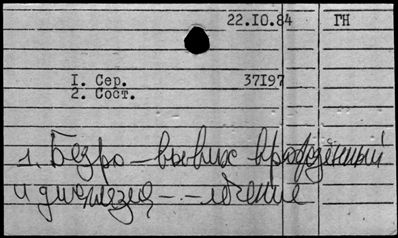 22.10.84 ГН
1. Сер. 37197
2. Сост.
1. Бедро — вывих врожденный
и дисплазия — лечение